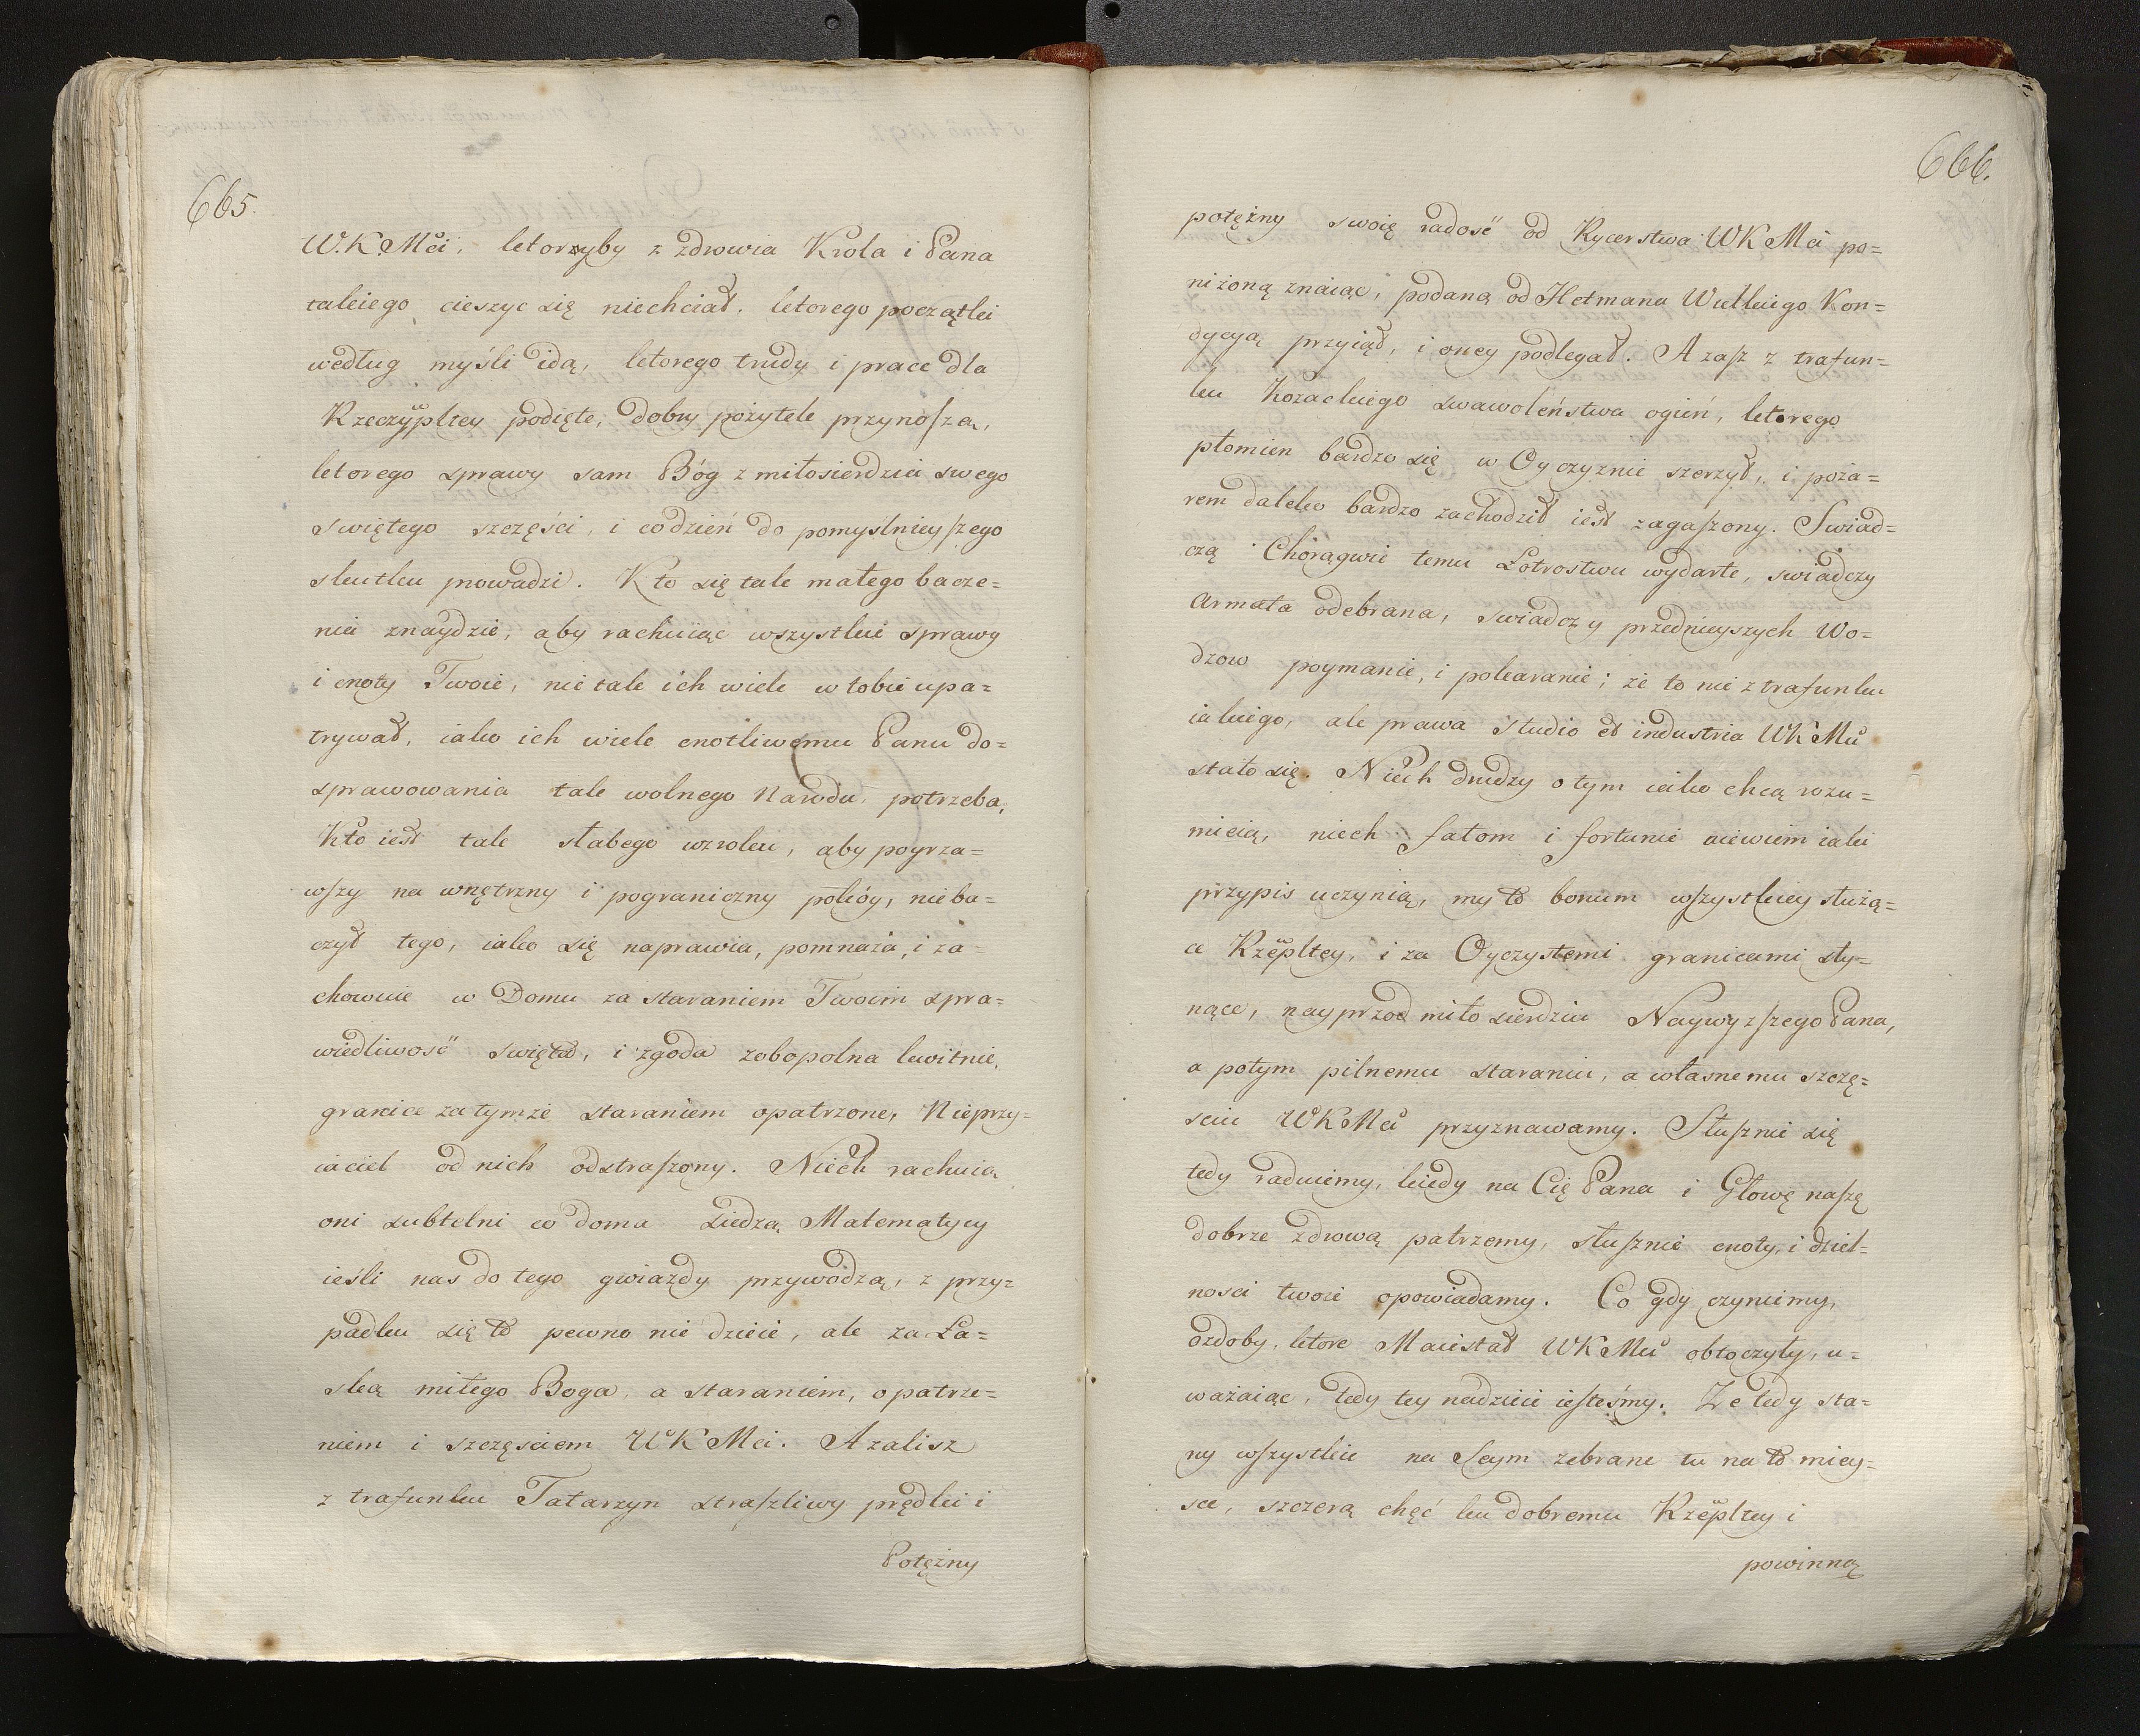 665.
W.K.Mci, ktorzyby z zdrowia Krola i Pana
takiego cieszyc się niechciał. ktorego początki
według myśli idą, ktorego trudy i prace dla
Rzeczÿpltey podięte, dobry pożytek przynoszą,
ktorego sprawy sam Bóg z miłosierdzia swego
swiętego szczęści, i codzień do pomyślnieyszego
skutku prowadzi. Kto się tak małego bacze=
nia znaydzie, aby rachuiąc wszystkie sprawy
i cnoty Twoie, nie tak ich wiele w tobie upa=
trywał, iako ich wiele cnotliwemu Panu do=
sprawowania tak wolnego Narodu, potrzeba,
Kto iest tak słabego wzroku, aby poyrza=
wszy na wnętrzny i pograniczny pokóy, nieba=
czył tego, iako się naprawia, pomnaża, i za=
chowuie w Domu za staraniem Twoim spra=
wiedliwość swięta, i zgoda zobopolna kwitnie,
granice za tymże staraniem opatrzone, Nieprzy=
iaciel od nich odstraszony. Niech rachuią
oni subtelni co doma siedzą Matematycy
ieśli nas do tego gwiazdy przywodzą, z przy=
padku się to pewno nie dzieie, ale za Ła=
ską miłego Boga, a staraniem, opatrze=
niem i szczęsciem WKMci. Azalisz
z trafunku Tatarzyn straszliwy prędki i
Potężny
666.
potężny swoię radość od Rycerstwa WKMci po=
niżoną znaiąc, podaną od Hetmana Wielkiego Kon=
dycyą przyiął, i oney podlegał. A zasz z trafun=
ku Kozackiego swawoleństwa ogień, ktorego
płomien bardzo się w Oyczyznie szerzył, i poża=
rem daleko bardzo zachodził iest zagaszony. Swiad=
czą Chorągwie temu Łotrostwu wydarte, swiadczy
Armata odebrana, swiadczy przednieyszych Wo=
dzow poymanie, i pokaranie; że to nie z trafunku
iakiego, ale prawa studio et industria WKMci
stało się. Niech drudzy o tym iako chcą rozu=
mieią, niech fatom i fortunie niewiem iaki
przypis uczynią, my to bonum wszystkiey służą=
ce Rzëpltey, i za Oyczystemi granicami sły=
nące, nayprzod miłosierdziu Naywyzszego Pana,
a potym pilnemu staraniu, a własnemu szczę=
sciu WKMci przyznawamy. Słusznie się
tedy raduiemy, kiedy na Cię Pana i Głowę naszę
dobrze zdrową patrzemy, słusznie cnoty, i dziel=
nosci twoie opowiadamy. Co gdy czyniemy,
ozdoby, ktore Maiestat WKMci obtoczyły, u=
ważaiąc, tedy tey nadzieie iesteśmy. Że tedy sta=
ny wszystkie na Seym zebrane tu na to miey=
sce, szczerą chęć ku dobremu Rzëpltey i
powinną